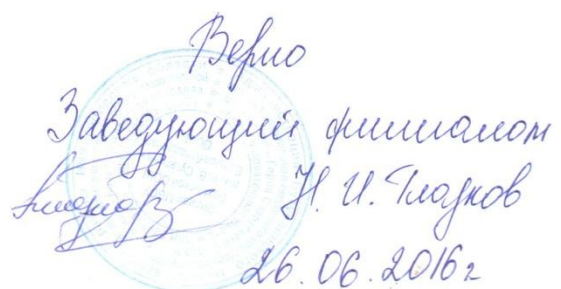 Верно
Заведующий филиалом
Н. И. Гладков
26.06.2016г